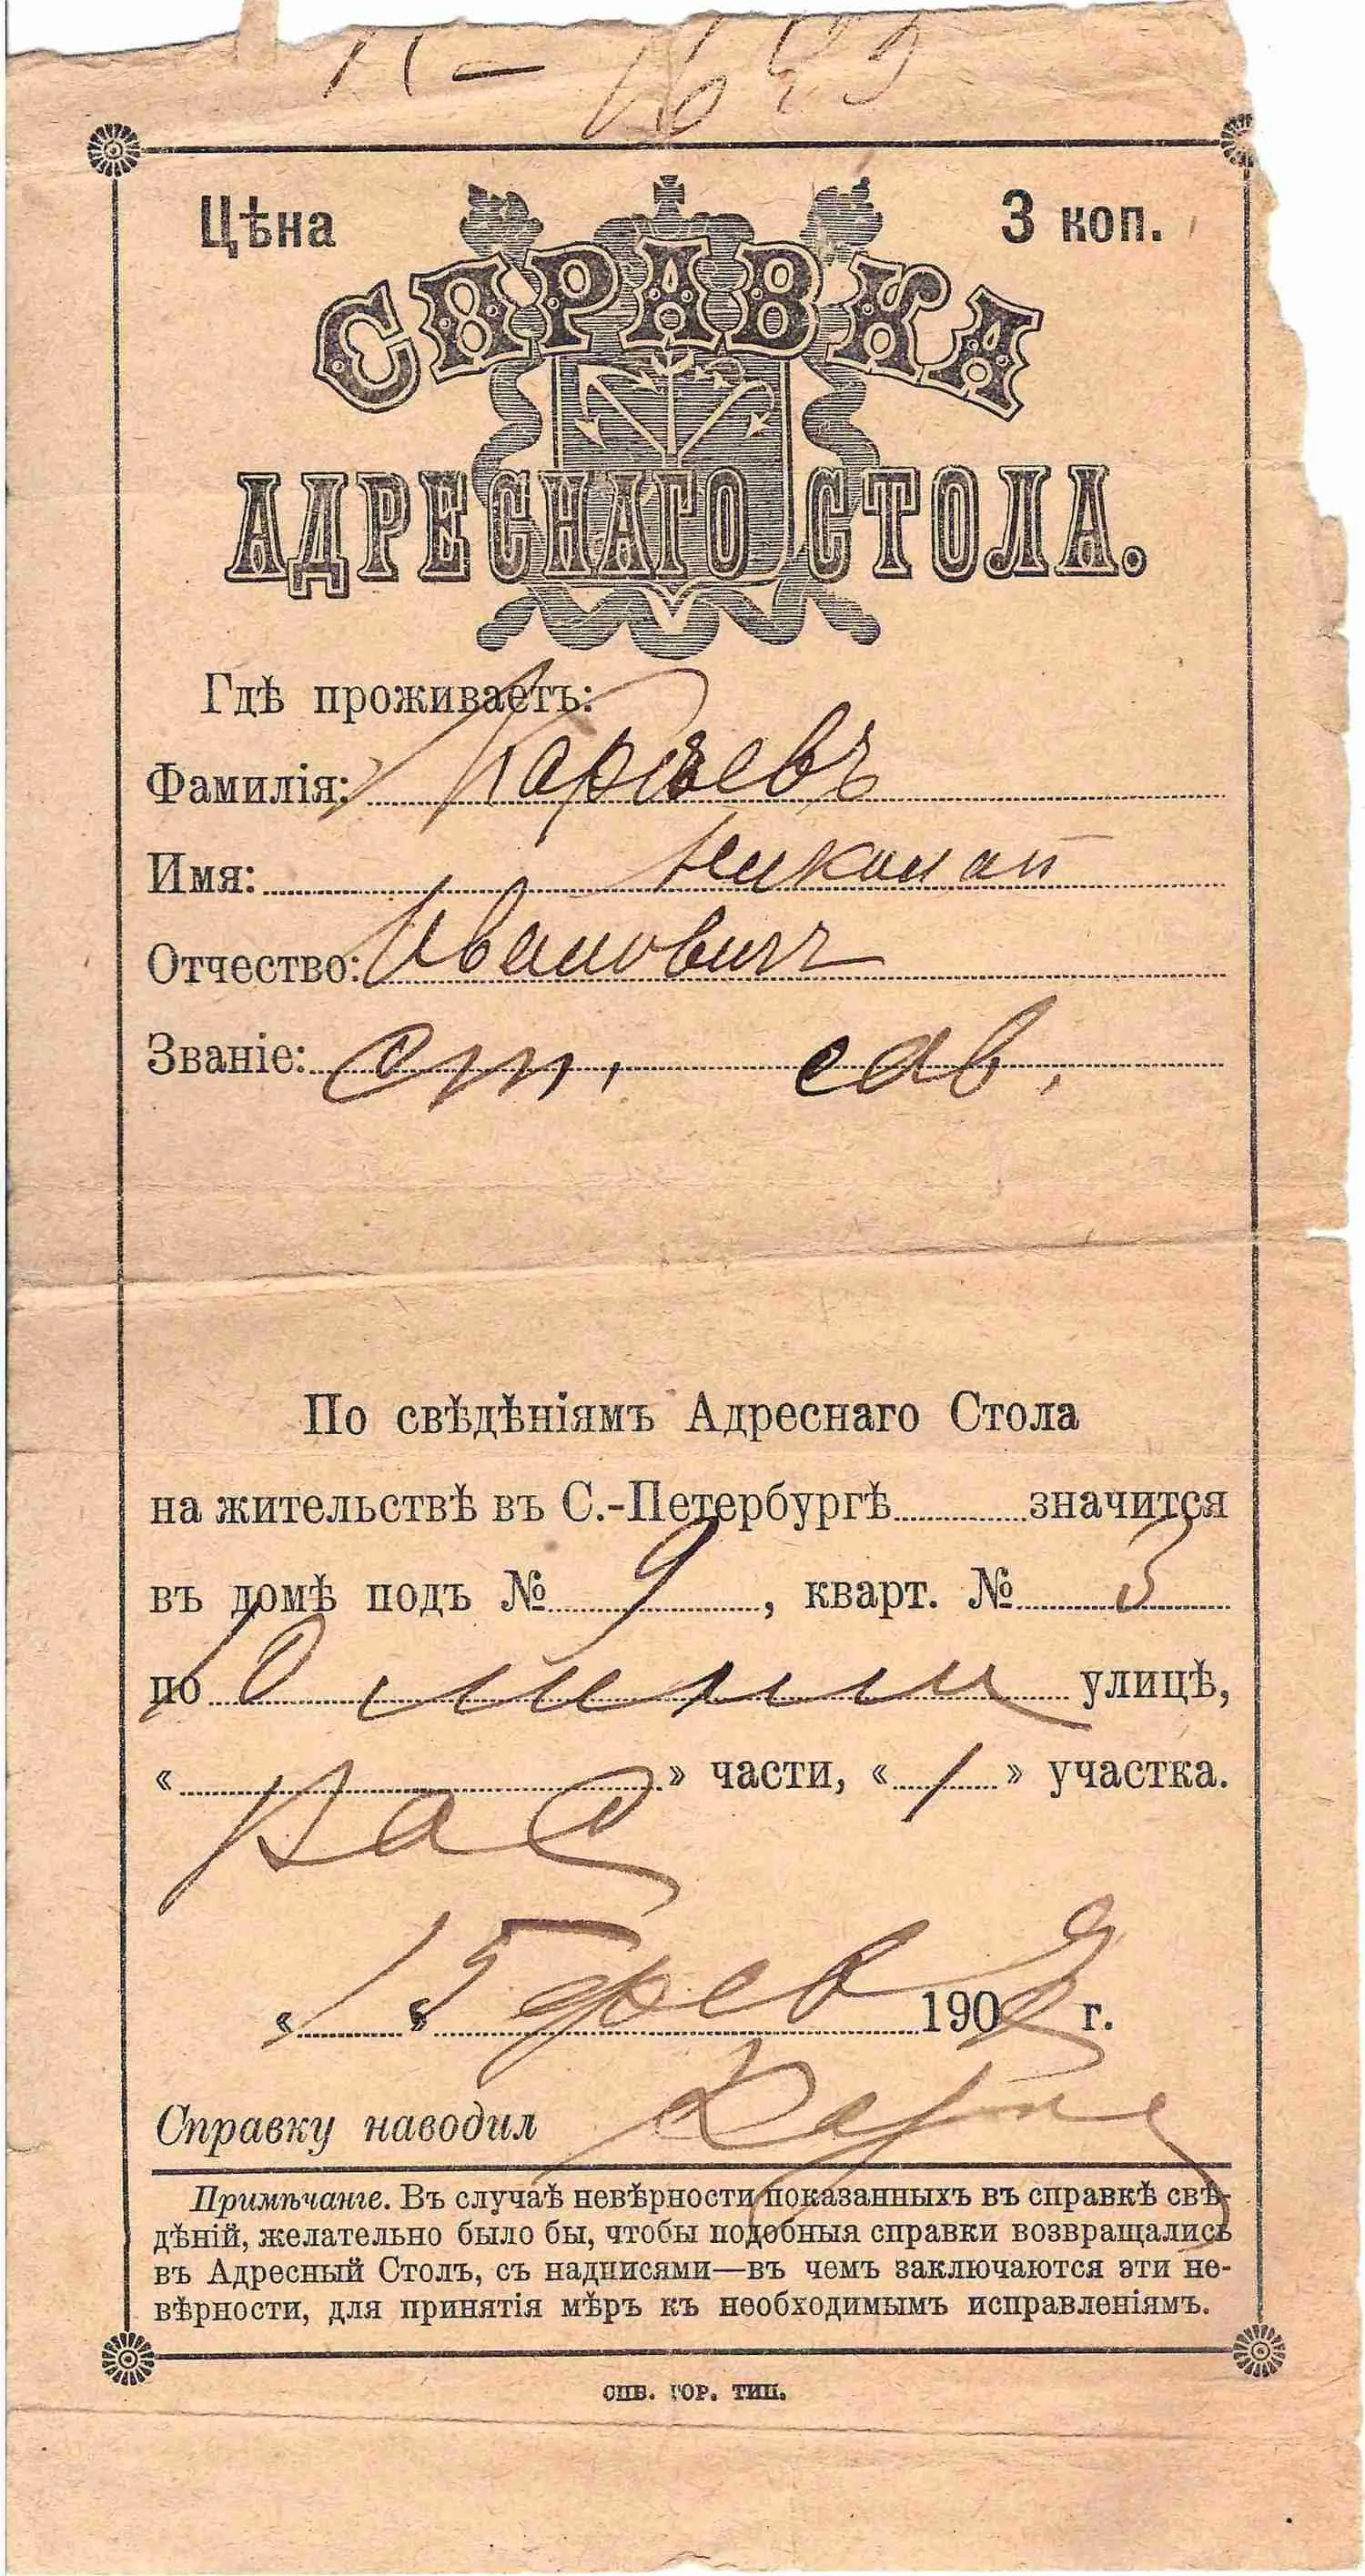 Цѣна 3 коп.
СПРАВКА
АДРЕСНАГО СТОЛА.
Гдѣ проживаетъ:
Фамилія: Карѣевъ
Имя: Николай
Отчество: Ивановичъ
Званіе: ст. сов.
По свѣдѣніямъ Адреснаго Стола
на жительствѣ въ С.-Петербургѣ значится
въ домѣ подъ № 9, кварт. № 3
по 10 линіи улицѣ,
« Вас » части, « 1 » участка.
« 15 » фев 190 г.
Справку наводил
Примѣчаніе. Въ случаѣ невѣрности показанныхъ въ справкѣ свѣ-
дѣній, желательно было бы, чтобы подобныя справки возвращались
въ Адресный Столъ, съ надписями—въ чемъ заключаются эти не-
вѣрности, для принятія мѣръ къ необходимымъ исправленіямъ.
СПБ. ГОР. ТИП.